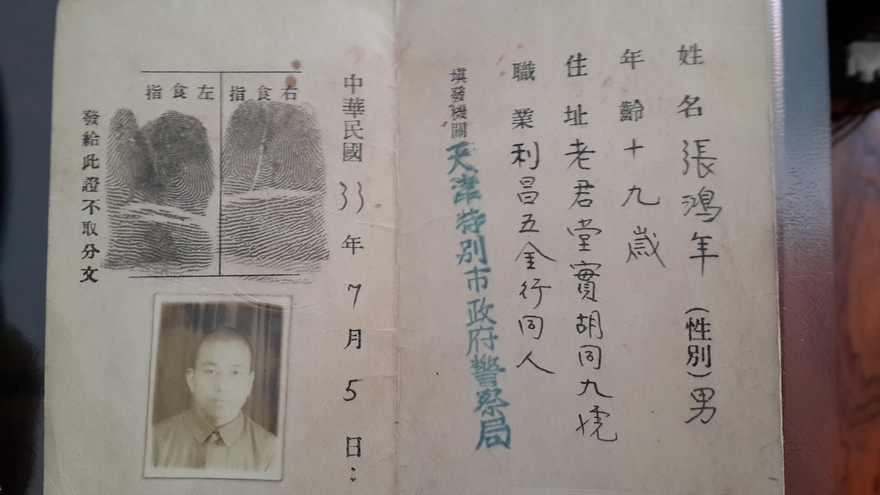 姓名張鴻年(性別)男
年齡十九歲
住址老君堂實胡同九號
職業利昌五金行同人
填發機關天津特別市政府警察局
中華民國33年7月5日
右食指
左食指
發給此證不取分文